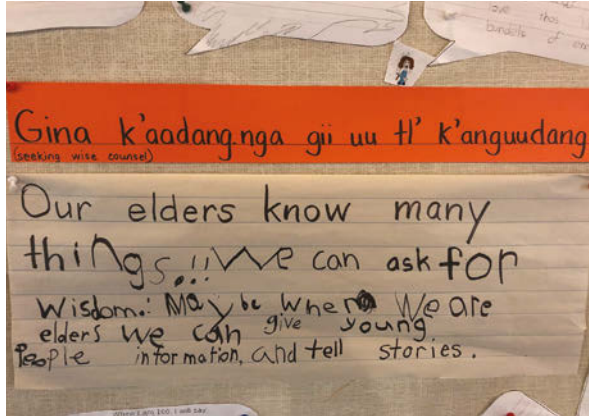 bundels of
Gina k'aadang.nga gii uu tl' k'anguudang
(seeking wise counsel)
Our elders know many
things.!! We can ask for
Wisdom.: Maybe When We are
elders we can give young
People information, and tell stories.
When I am 100, I will say